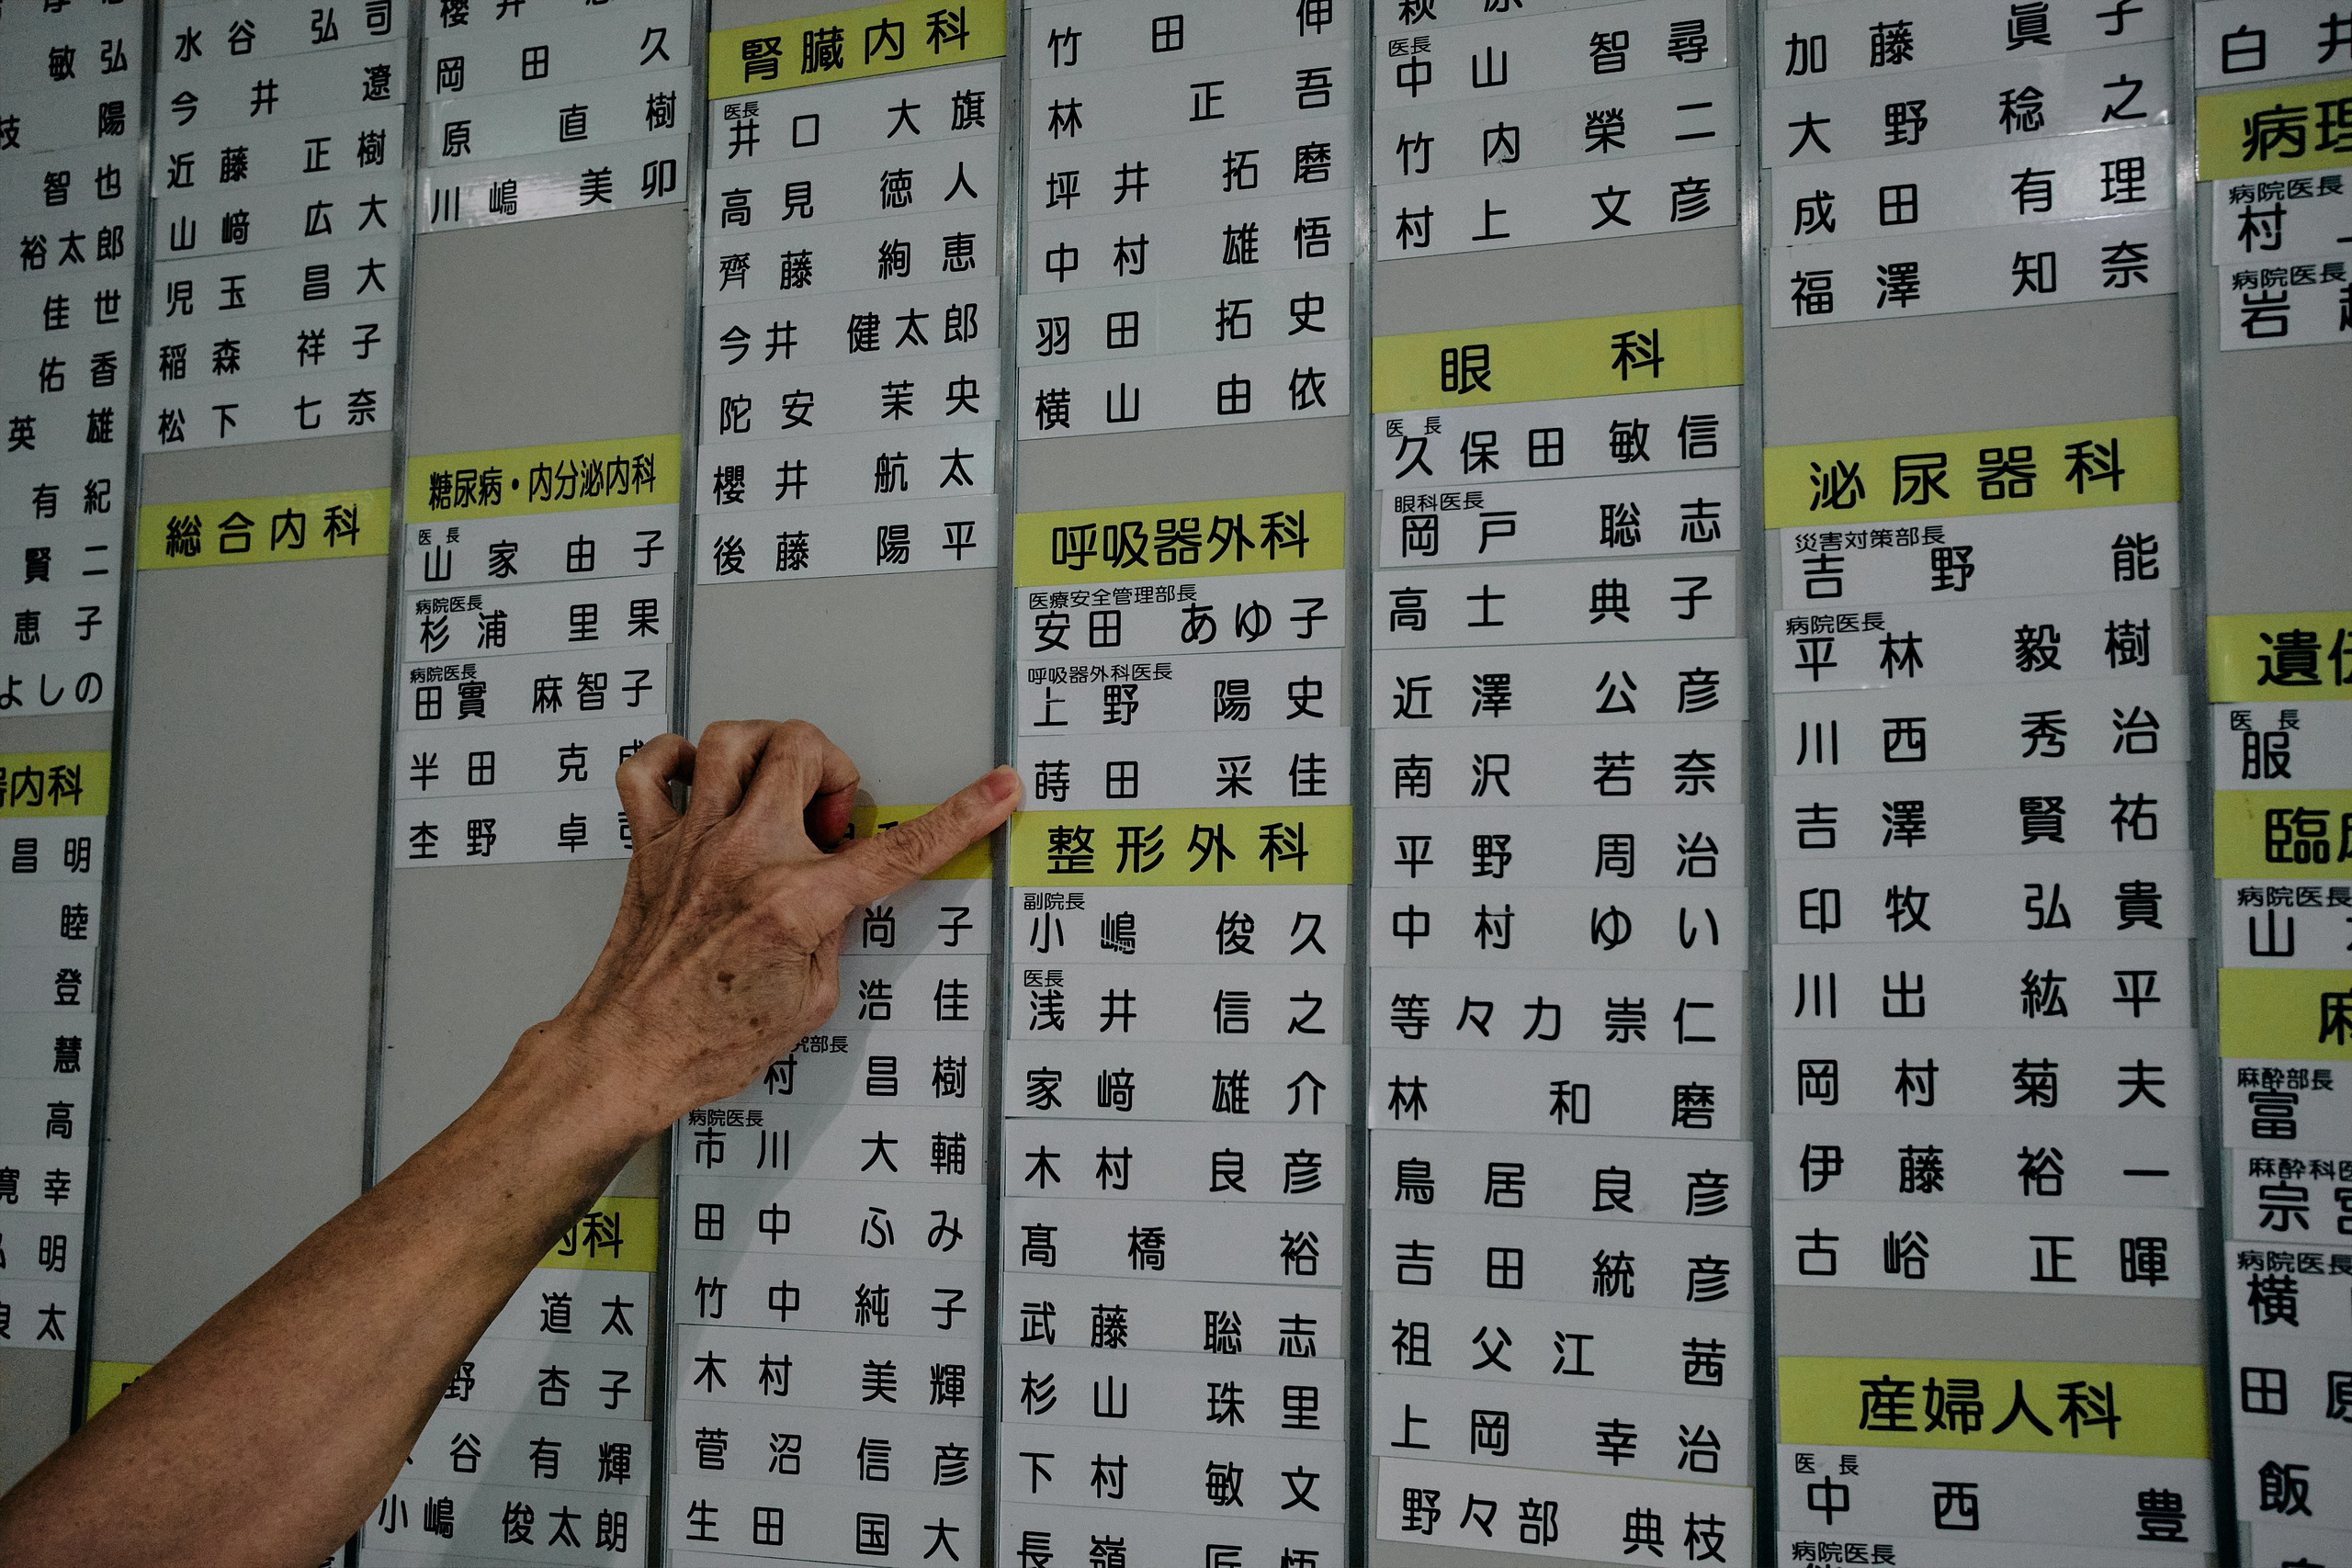 敏弘
陽
智也
裕太郎
佳世
佑香
英雄
有紀
賢二
恵子
よしの
内科
昌明
睦
登
慧
高
幸
明
太
水谷 弘司
今井 遼
近藤 正樹
山﨑 広大
児玉 昌大
稲森 祥子
松下 七奈
総合内科
岡田 久
原 直樹
川嶋 美卯
糖尿病・内分泌内科
医長
山家 由子
病院医長
杉浦 里果
病院医長
田實 麻智子
半田 克
杢野 卓
内科
道太
野 杏子
谷 有輝
小嶋 俊太朗
腎臓内科
医長
井口 大旗
高見 徳人
齊藤 絢恵
今井 健太郎
陀安 茉央
櫻井 航太
後藤 陽平
尚子
浩佳
究部長
村 昌樹
病院医長
市川 大輔
田中 ふみ
竹中 純子
木村 美輝
菅沼 信彦
生田 国大
竹田 伸
林 正吾
坪井 拓磨
中村 雄悟
羽田 拓史
横山 由依
呼吸器外科
医療安全管理部長
安田 あゆ子
呼吸器外科医長
上野 陽史
蒔田 采佳
整形外科
副院長
小嶋 俊久
医長
浅井 信之
家﨑 雄介
木村 良彦
髙橋 裕
武藤 聡志
杉山 珠里
下村 敏文
長嶺 匠悟
萩原
医長
中山 智尋
竹内 榮二
村上 文彦
眼科
医長
久保田 敏信
眼科医長
岡戸 聡志
高士 典子
近澤 公彦
南沢 若奈
平野 周治
中村 ゆい
等々力 崇仁
林 和磨
鳥居 良彦
吉田 統彦
祖父江 茜
上岡 幸治
野々部 典枝
加藤 眞子
大野 稔之
成田 有理
福澤 知奈
泌尿器科
災害対策部長
吉野 能
病院医長
平林 毅樹
川西 秀治
吉澤 賢祐
印牧 弘貴
川出 紘平
岡村 菊夫
伊藤 裕一
古峪 正暉
産婦人科
医長
中西 豊
病院医長
白井
病理
病院医長
村上
病院医長
岩
遺伝
医長
服
臨床
病院医長
山
麻
麻酔部長
富
麻酔科医
宗宮
病院医長
横
田原
飯